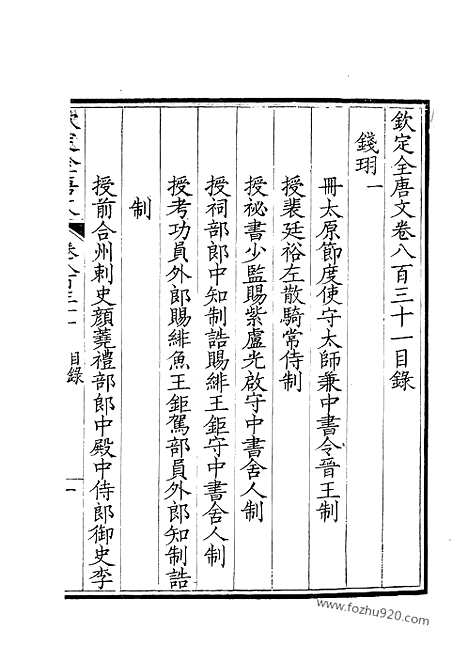 欽定全唐文卷八百三十一目錄
錢珝一
冊太原節度使守太師兼中書令晉王制
授裴廷裕左散騎常侍制
授祕書少監賜紫盧光啟守中書舍人制
授祠部郎中知制誥賜緋王鉅守中書舍人制
授考功員外郎賜緋魚王鉅駕部員外郎知制誥
制
授前合州刺史顏蕘禮部郎中殿中侍郎御史李
目錄
一
www.fozhu920.com